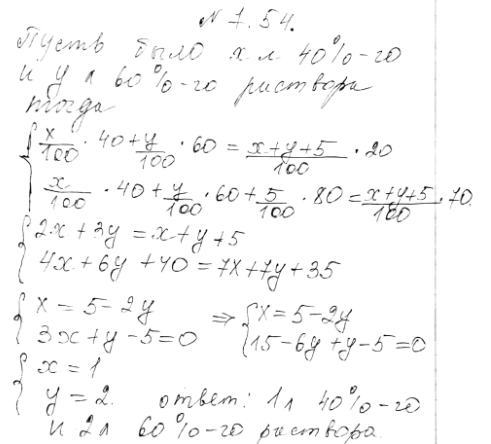 № 7.54.
Пусть было x л 40%-го
и y л 60%-го раствора
тогда
{ x/100 · 40 + y/100 · 60 = x+y+5/100 · 20
x/100 · 40 + y/100 · 60 + 5/100 · 80 = x+y+5/100 · 70.
{ 2x + 3y = x + y + 5
4x + 6y + 40 = 7x + 7y + 35
{ x = 5 - 2y ⇒ { x = 5 - 2y
3x + y - 5 = 0 15 - 6y + y - 5 = 0
{ x = 1
y = 2. ответ: 1 л 40%-го
и 2 л 60%-го раствора.